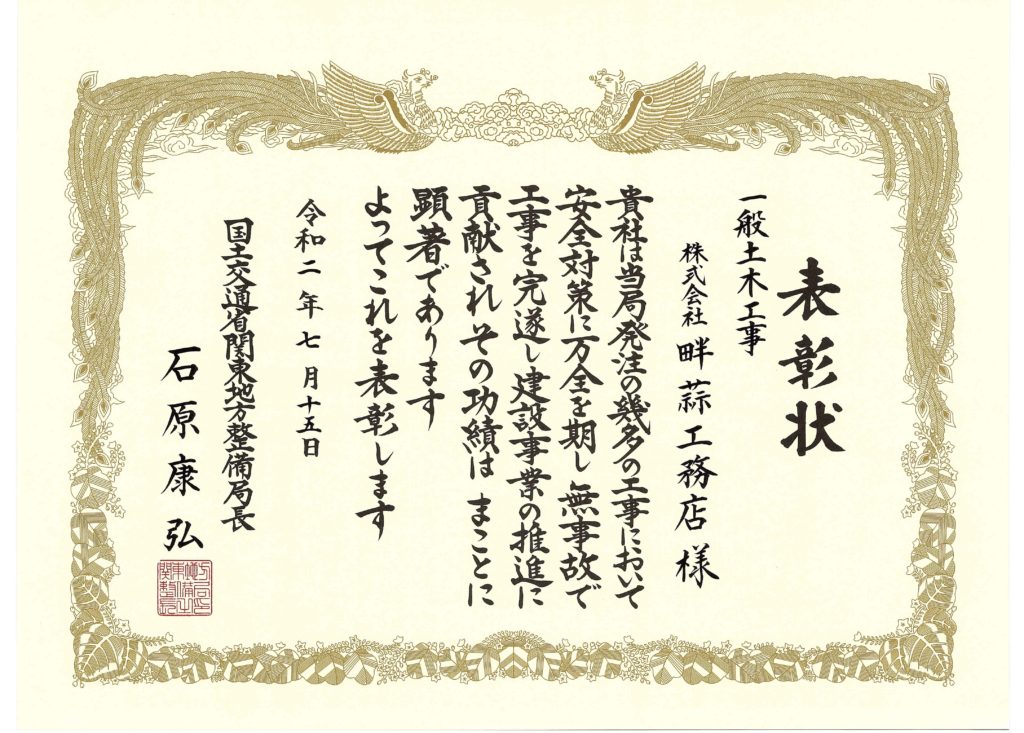 表彰状
一般土木工事
株式会社 畔蒜工務店 様
貴社は当局発注の幾多の工事において
安全対策に万全を期し 無事故で
工事を完遂し建設事業の推進に
貢献されその功績は まことに
顕著であります
よってこれを表彰します
令和二年七月十五日
国土交通省関東地方整備局長
石原康弘